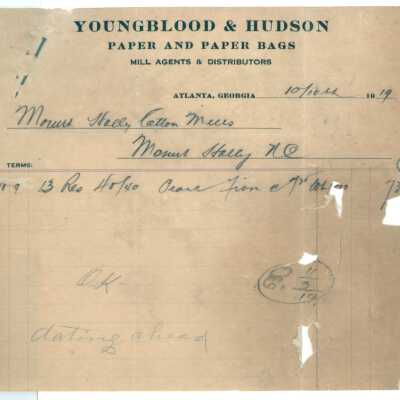 YOUNGBLOOD & HUDSON
PAPER AND PAPER BAGS
MILL AGENTS & DISTRIBUTORS
ATLANTA, GEORGIA 10/10th 1919
Mount Holly Cotton Mills
Mount Holly N C
TERMS:
13 Res 40/60
OK
E. 11/2/19
dating ahead